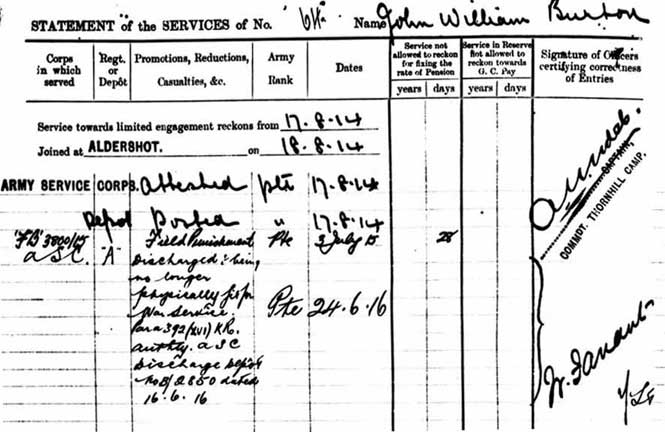 STATEMENT of the SERVICES of No. Name John William Burton
Corps in which served
Regt. or Depôt
Promotions, Reductions, Casualties, &c.
Army Rank
Dates
Service not allowed to reckon for fixing the rate of Pension
years days
Service in Reserve not allowed to reckon towards G. C. Pay
years days
Signature of Officers certifying correctness of Entries
Service towards limited engagement reckons from 17.8.14
Joined at ALDERSHOT. on 18.8.14
ARMY SERVICE CORPS. Attested pte 17.8.14
Depot Posted " 17.8.14
3800/15 Field Punishment Pte 3 July 15 28
A.S.C. "A" Discharged : being
no longer
physically fit for
War Service. Pte 24.6.16
Para 392 (XVI) K.R.
Authty. A S C
Discharge Depot
dated
16.6.16
CAPTAIN,
COMMDT. THORNHILL CAMP.